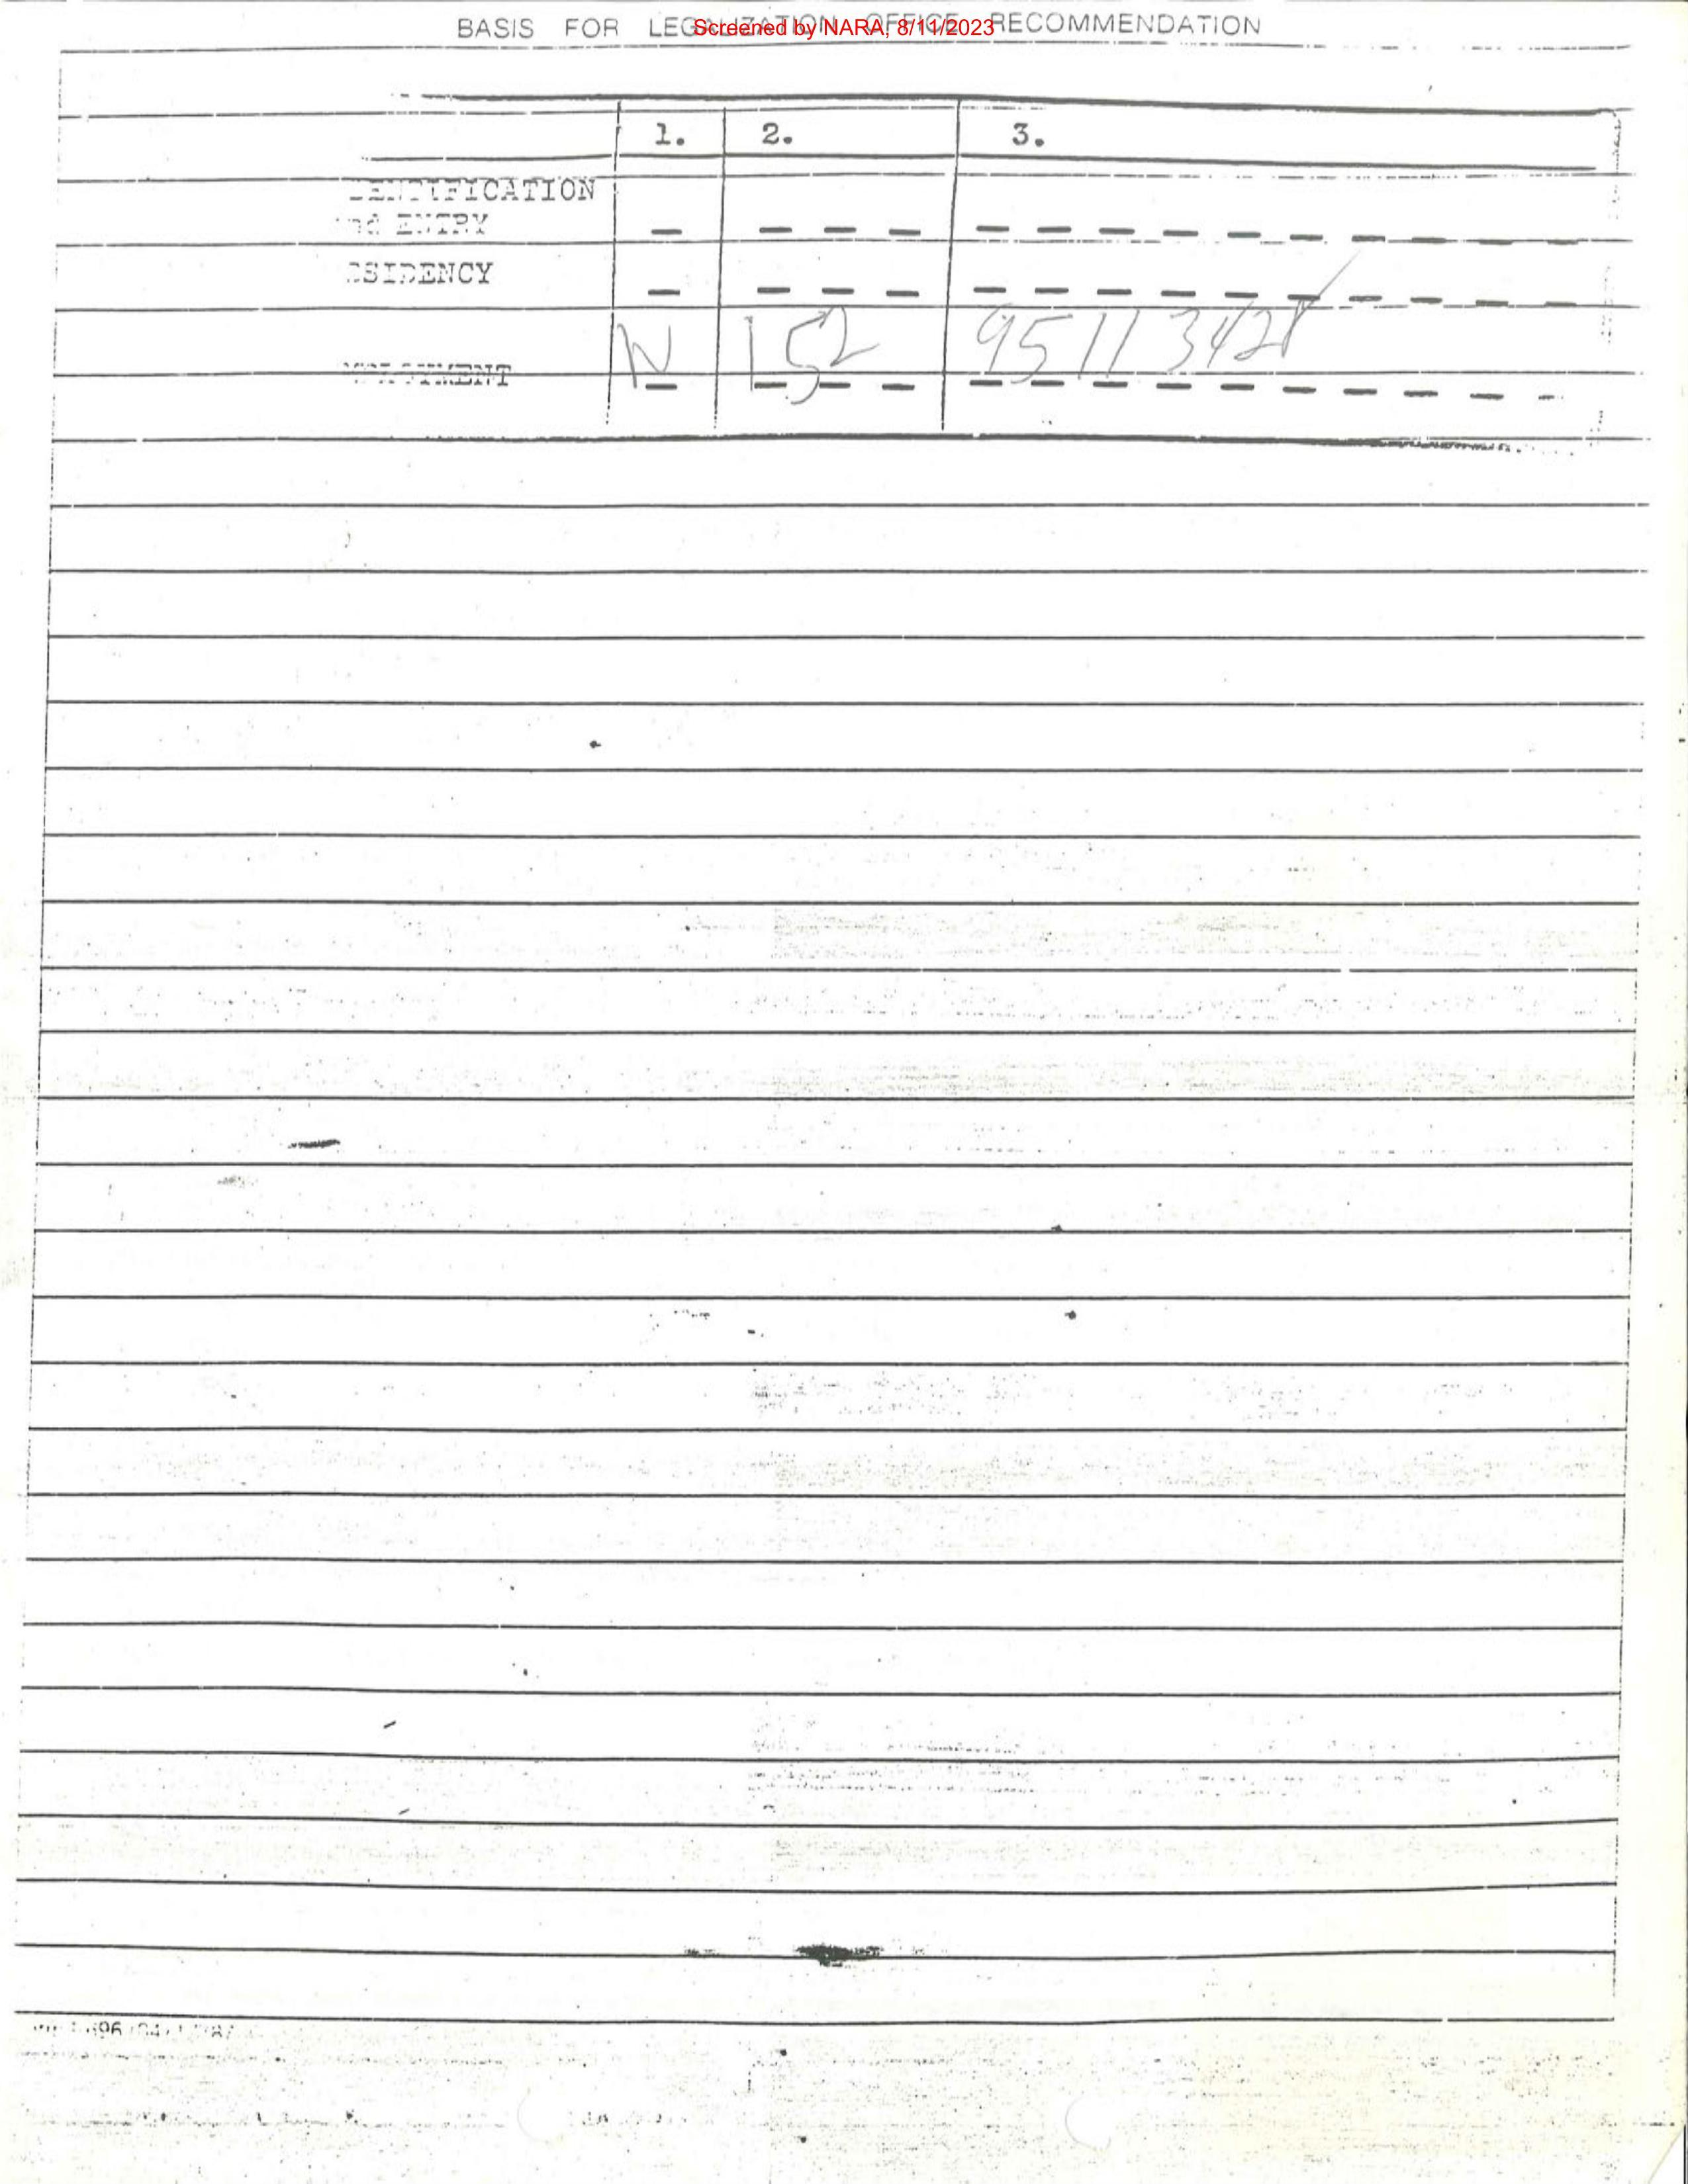 BASIS FOR LEGALIZATION OFFICE RECOMMENDATION
Screened by NARA, 8/11/2023
1. 2. 3.
IDENTIFICATION
and ENTRY
RESIDENCY
N 152 95113421